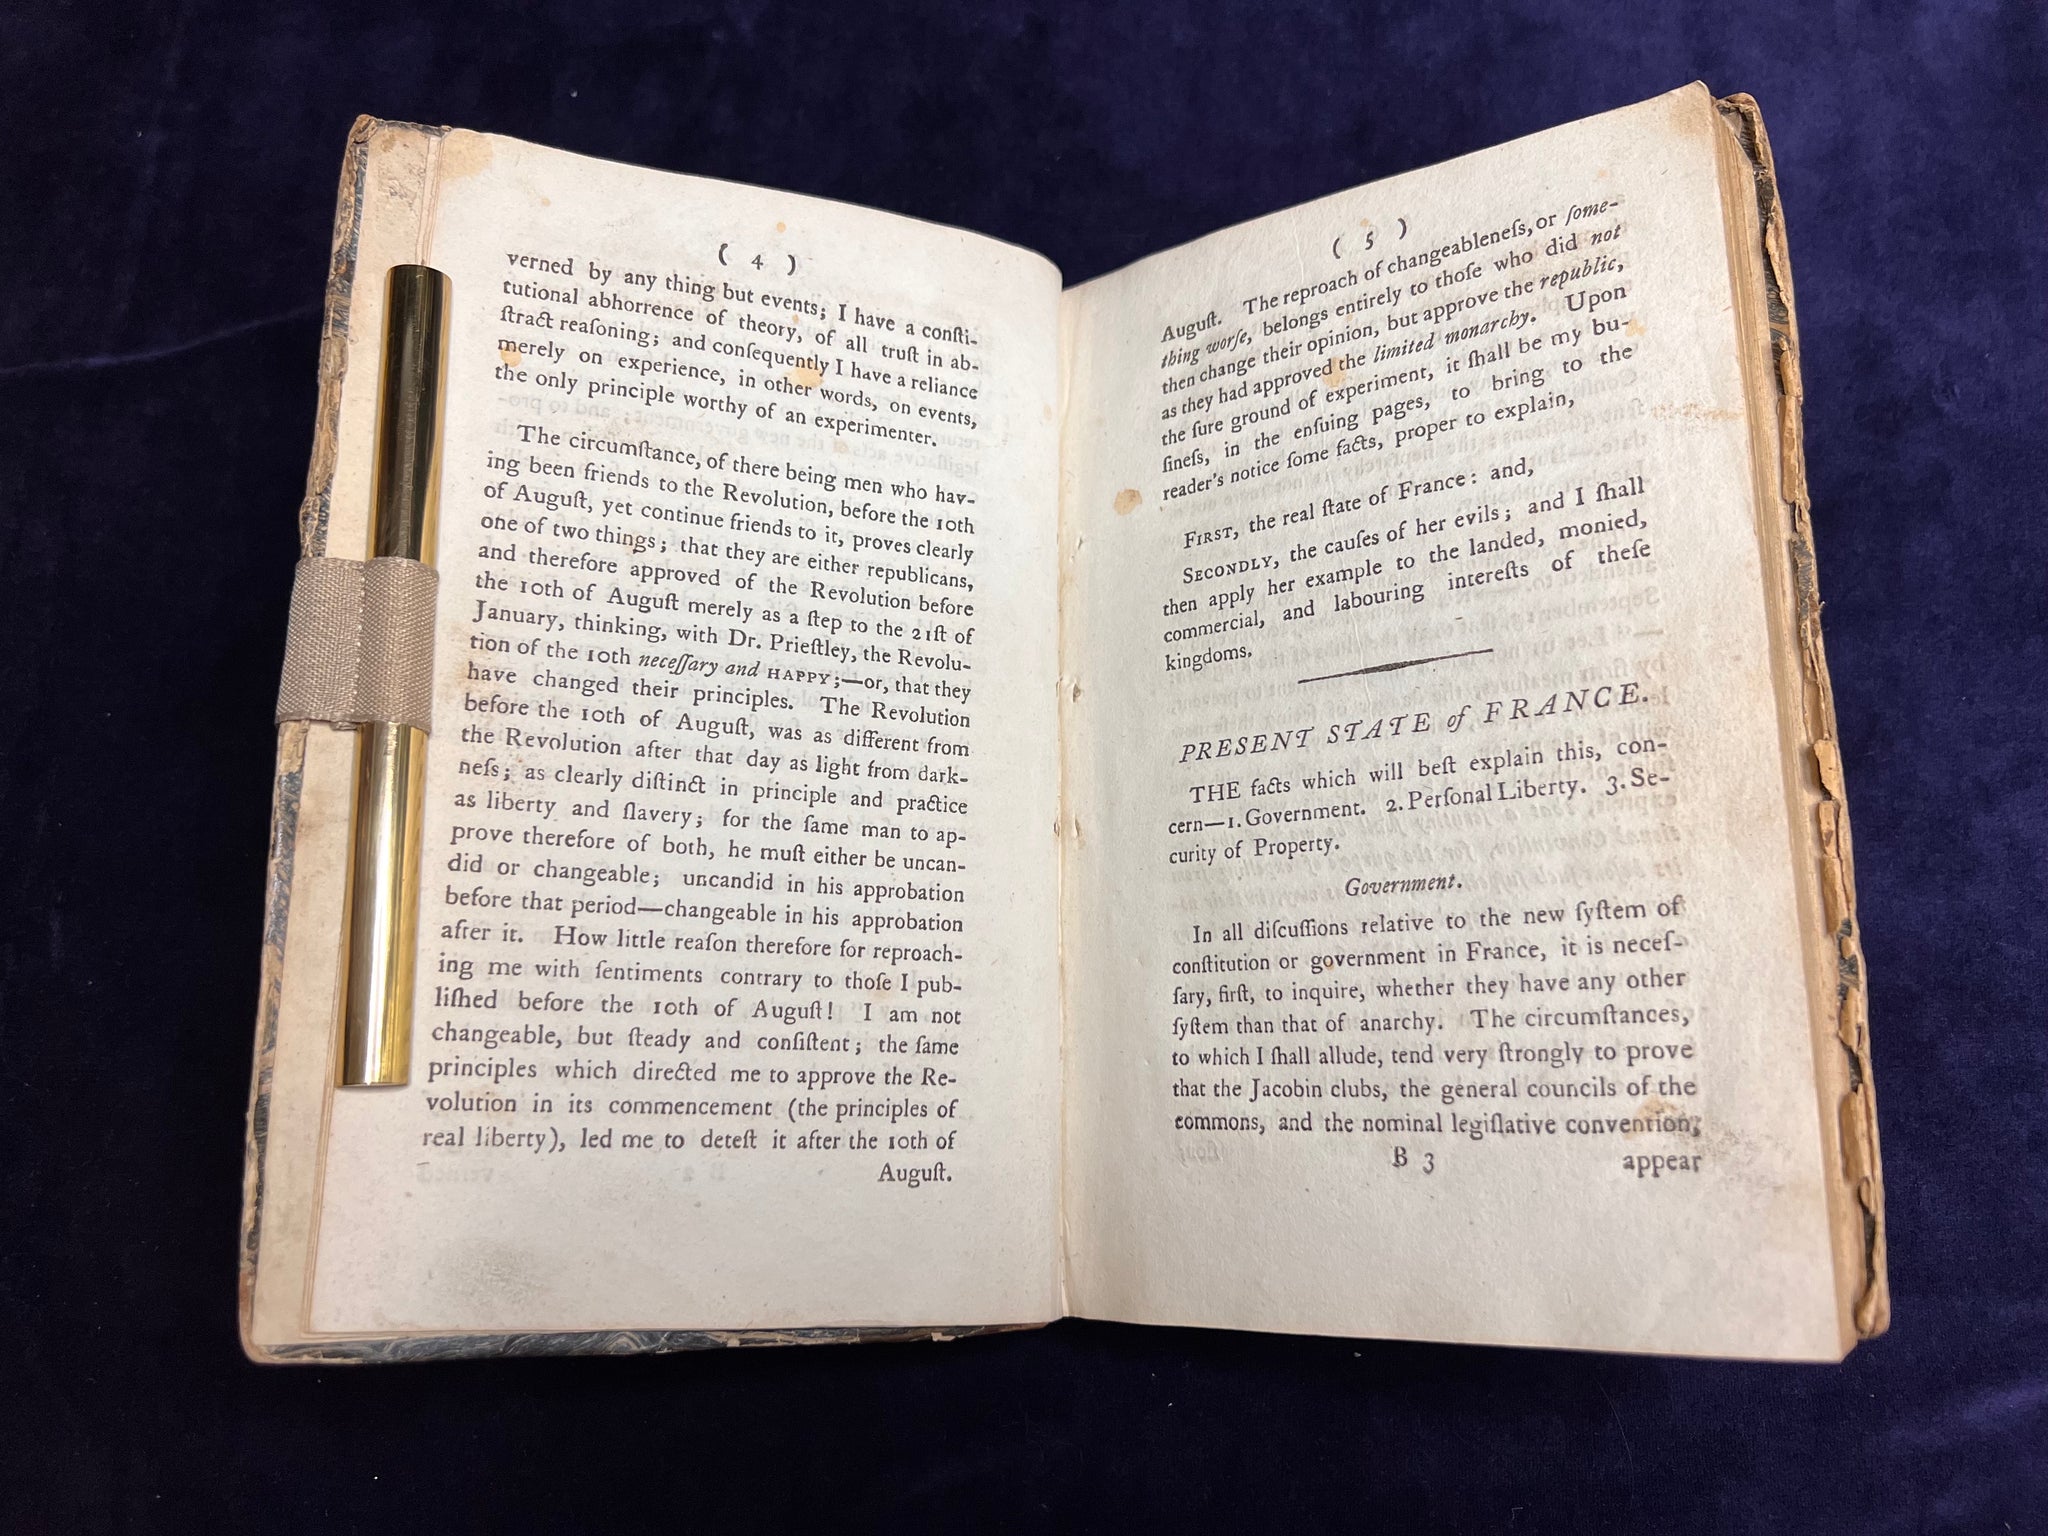 ( 4 )
verned by any thing but events; I have a conſti-
tutional abhorrence of theory, of all truſt in ab-
ſtract reaſoning; and conſequently I have a reliance
merely on experience, in other words, on events,
the only principle worthy of an experimenter.
The circumſtance, of there being men who hav-
ing been friends to the Revolution, before the 10th
of Auguſt, yet continue friends to it, proves clearly
one of two things; that they are either republicans,
and therefore approved of the Revolution before
the 10th of Auguſt merely as a ſtep to the 21ſt of
January, thinking, with Dr. Prieſtley, the Revolu-
tion of the 10th neceſſary and HAPPY;—or, that they
have changed their principles. The Revolution
before the 10th of Auguſt, was as different from
the Revolution after that day as light from dark-
neſs; as clearly diſtinct in principle and practice
as liberty and ſlavery; for the ſame man to ap-
prove therefore of both, he muſt either be uncan-
did or changeable; uncandid in his approbation
before that period—changeable in his approbation
after it. How little reaſon therefore for reproach-
ing me with ſentiments contrary to thoſe I pub-
liſhed before the 10th of Auguſt! I am not
changeable, but ſteady and conſiſtent; the ſame
principles which directed me to approve the Re-
volution in its commencement (the principles of
real liberty), led me to deteſt it after the 10th of
Auguſt.
( 5 )
Auguſt. The reproach of changeableneſs, or ſome-
thing worſe, belongs entirely to thoſe who did not
then change their opinion, but approve the republic,
as they had approved the limited monarchy. Upon
the ſure ground of experiment, it ſhall be my bu-
ſineſs, in the enſuing pages, to bring to the
reader's notice ſome facts, proper to explain,
FIRST, the real ſtate of France: and,
SECONDLY, the cauſes of her evils; and I ſhall
then apply her example to the landed, monied,
commercial, and labouring intereſts of theſe
kingdoms.
PRESENT STATE of FRANCE.
THE facts which will beſt explain this, con-
cern—1. Government. 2. Perſonal Liberty. 3. Se-
curity of Property.
Government.
In all diſcuſſions relative to the new ſyſtem of
conſtitution or government in France, it is neceſ-
ſary, firſt, to inquire, whether they have any other
ſyſtem than that of anarchy. The circumſtances,
to which I ſhall allude, tend very ſtrongly to prove
that the Jacobin clubs, the general councils of the
commons, and the nominal legiſlative convention,
B 3 appear